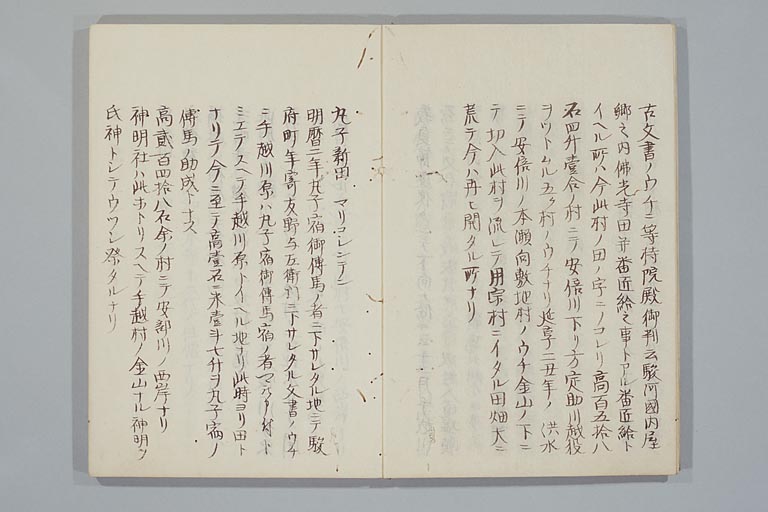 古文書ノウチニ等持院殿御判云駿河國内屋
郷之内佛光寺田并番匠給之事トアル番匠給ト
イヘル所ハ今此村ノ田ノ字ニノコレリ高百五拾八
石四斗壹合ノ村ニテ安倍川下リ方定助川越役
ヲツトムル五ヶ村ノウチナリ延享二丑年ノ洪水
ニテ安倍川ノ本瀬向敷地村ノウチ金山ノ下ニ
テ切入此村ヲ流レテ用宗村ニイタル田畑大ニ
荒テ今ハ再ヒ開タル所ナリ
丸子新田 マリコシンデン
明暦二年丸子宿御傳馬ノ者ニ下サレタル地ニテ駿
府町年寄友野与左衛門ニ下サレタル文書ノウチ
ニ手越川原ハ丸子宿御傳馬宿ノ者
ミエテスヘテ手越川原トイヘル地ナリ此時ヨリ田ト
ナリテ今ニ至テ高壹石ニ米壹斗七升ヲ丸子宿ノ
傳馬ノ助成トナス
高貳百四拾八石余ノ村ニテ安部川ノ西岸ナリ
神明社ハ此ホトリスヘテ手越村ノ金山ナル神明ヲ
氏神トシテウツシ祭タルナリ